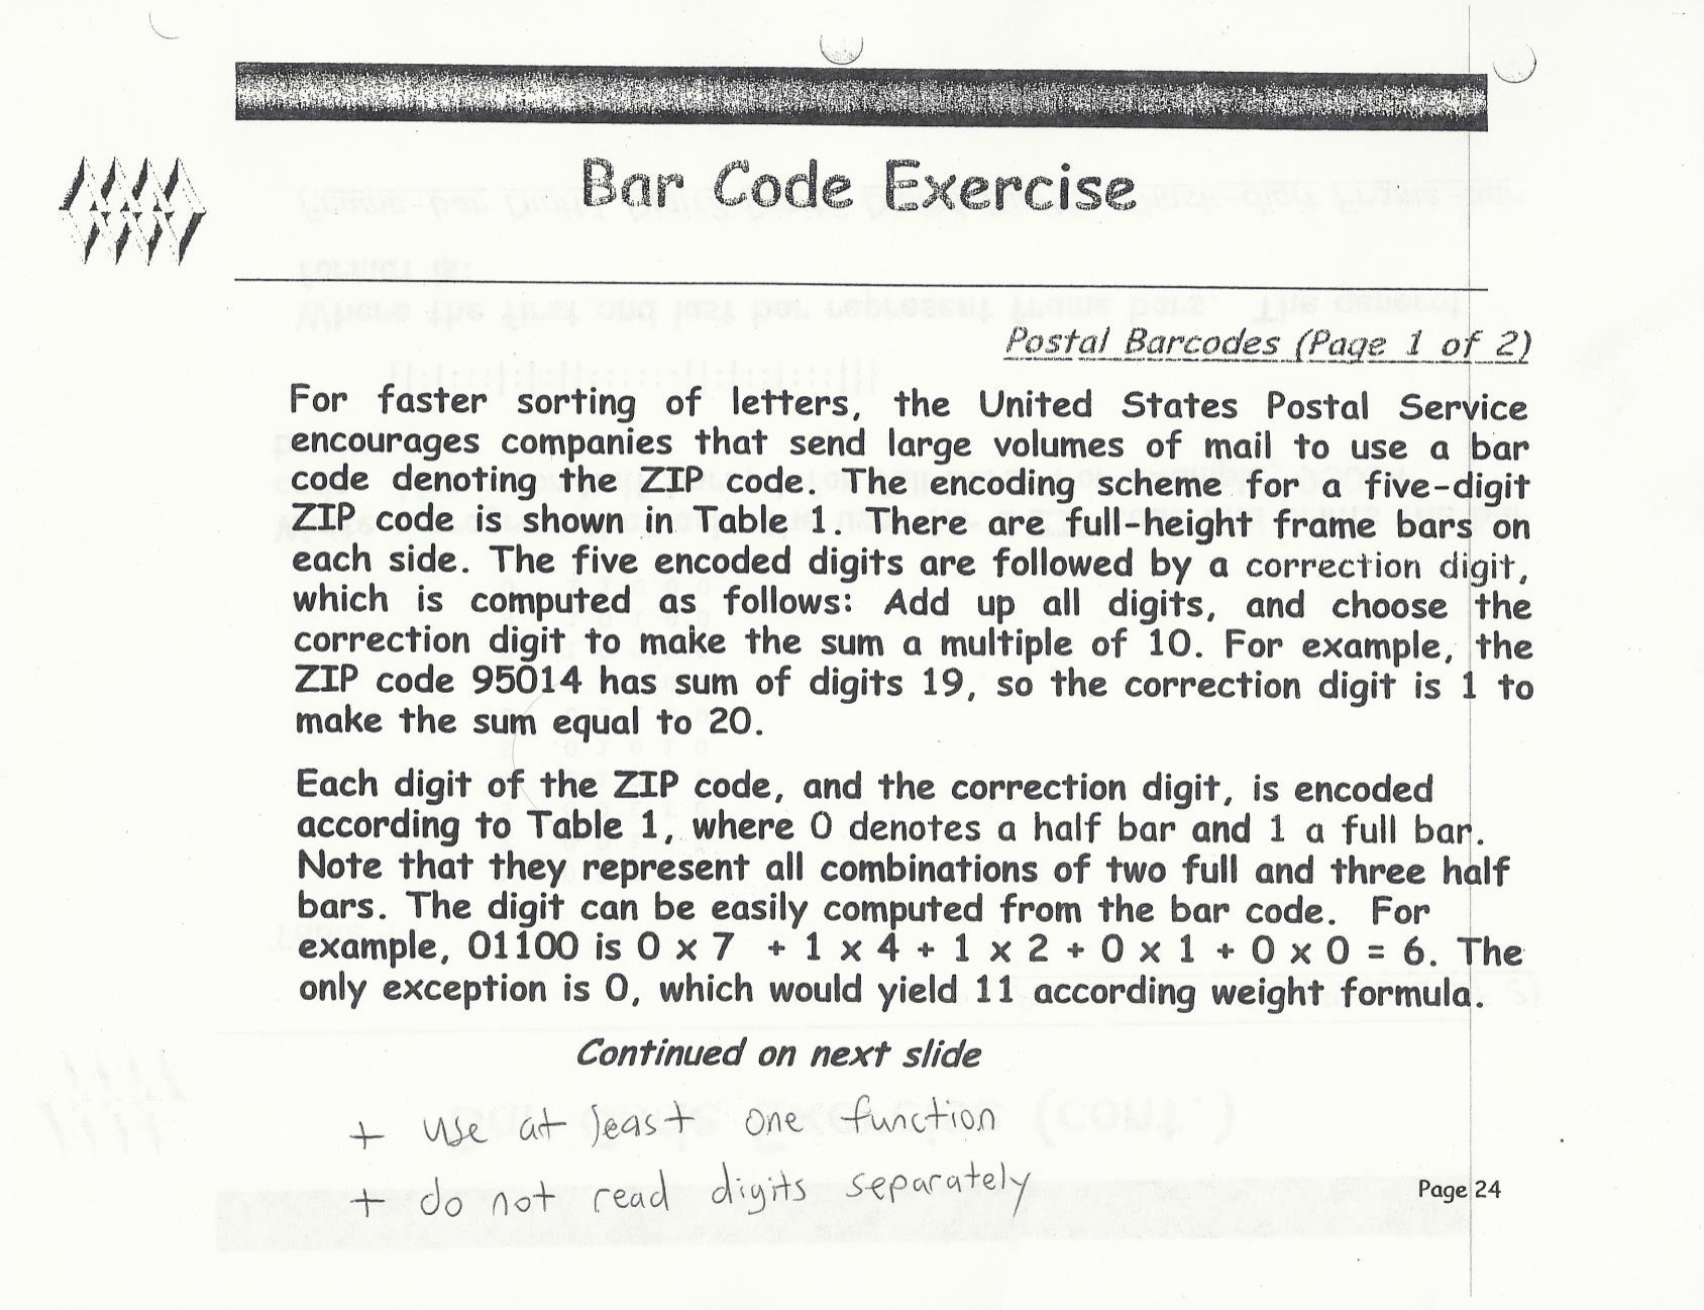 Bar Code Exercise
Postal Barcodes (Page 1 of 2)
For faster sorting of letters, the United States Postal Service
encourages companies that send large volumes of mail to use a bar
code denoting the ZIP code. The encoding scheme for a five-digit
ZIP code is shown in Table 1. There are full-height frame bars on
each side. The five encoded digits are followed by a correction digit,
which is computed as follows: Add up all digits, and choose the
correction digit to make the sum a multiple of 10. For example, the
ZIP code 95014 has sum of digits 19, so the correction digit is 1 to
make the sum equal to 20.
Each digit of the ZIP code, and the correction digit, is encoded
according to Table 1, where 0 denotes a half bar and 1 a full bar.
Note that they represent all combinations of two full and three half
bars. The digit can be easily computed from the bar code. For
example, 01100 is 0 x 7 + 1 x 4 + 1 x 2 + 0 x 1 + 0 x 0 = 6. The
only exception is 0, which would yield 11 according weight formula.
Continued on next slide
+ use at least one function
+ do not read digits separately
Page 24